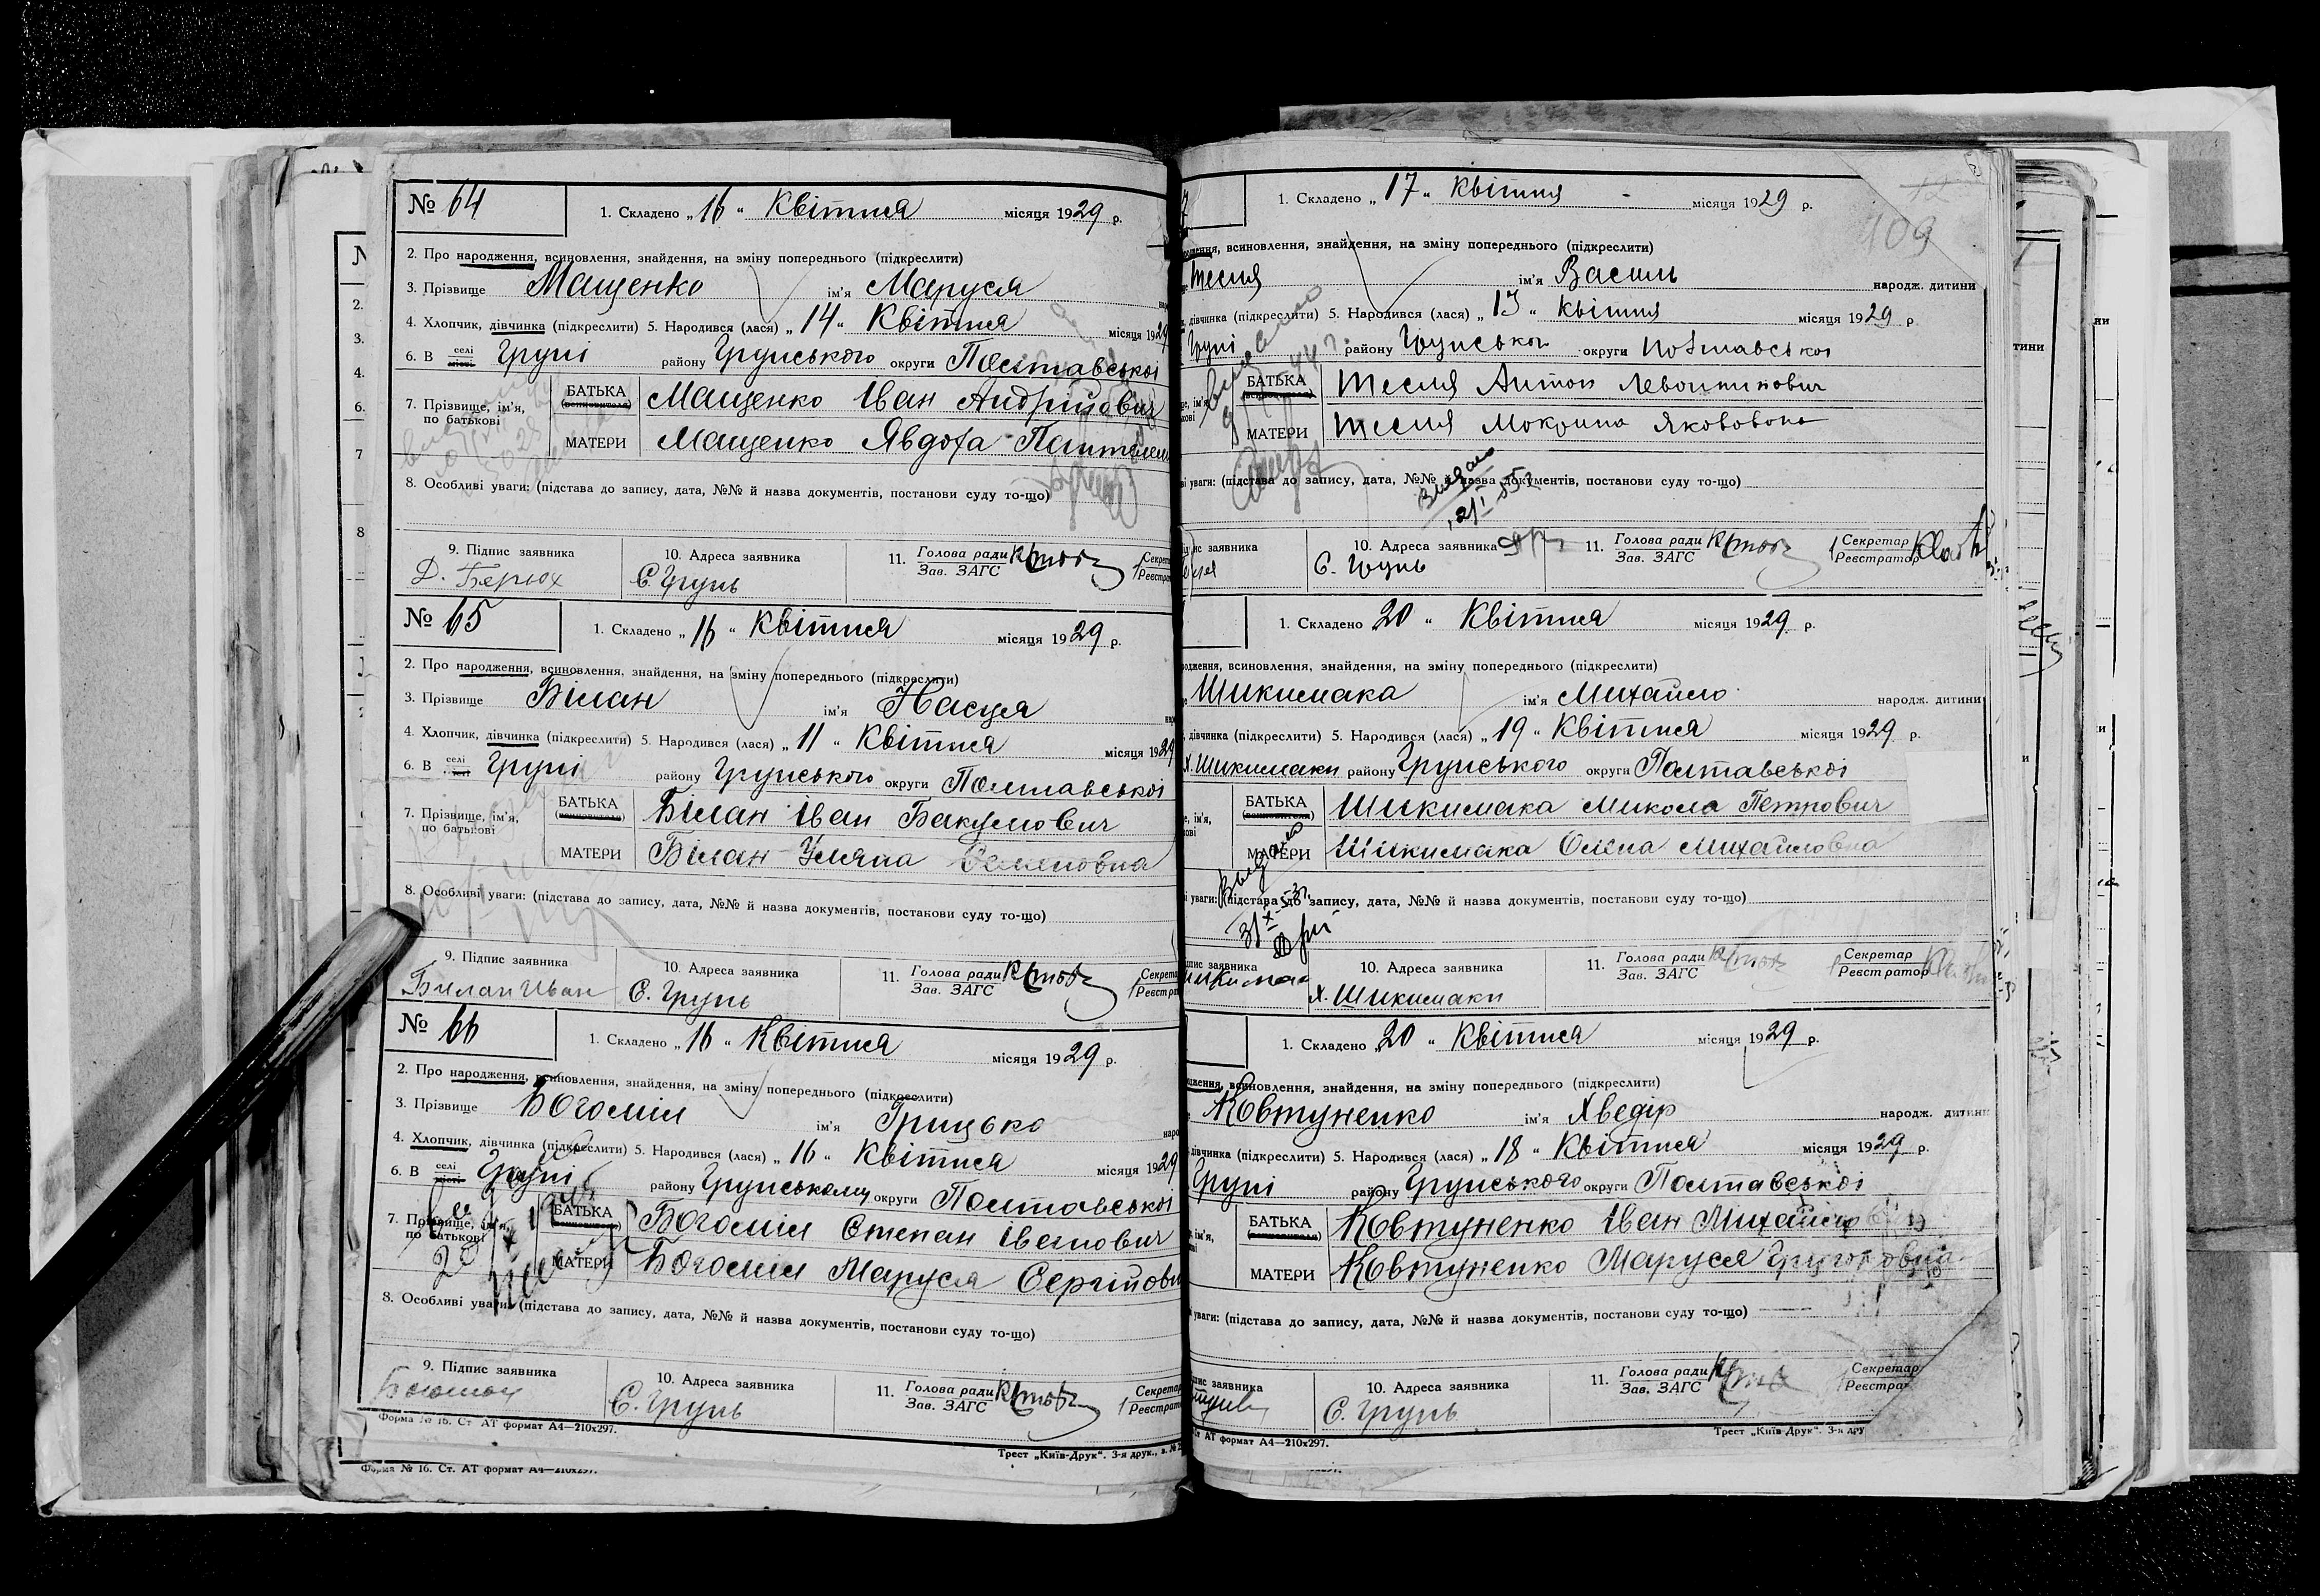 № 64
1. Складено „16“ Квітня місяця 1929 р.
2. Про народження, всиновлення, знайдення, на зміну попереднього (підкреслити)
3. Прізвище Мащенко ім'я Маруся
4. Хлопчик, дівчинка (підкреслити) 5. Народився (лася) „14“ Квітня місяця 1929
6. В селі Груні району Грунського округи Полтавської
7. Прізвище, ім'я, по батькові
БАТЬКА Мащенко Іван Андрійович
МАТЕРИ Мащенко Явдоха
8. Особливі уваги: (підстава до запису, дата, №№ й назва документів, постанови суду то-що)
9. Підпис заявника 10. Адреса заявника 11. Голова ради Зав. ЗАГС
Д. Берюх С. Грунь
№ 65
1. Складено „16“ Квітня місяця 1929 р.
2. Про народження, всиновлення, знайдення, на зміну попереднього (підкреслити)
3. Прізвище Білан ім'я Насця
4. Хлопчик, дівчинка (підкреслити) 5. Народився (лася) „11“ Квітня місяця 1929
6. В селі Груні району Грунського округи Полтавської
7. Прізвище, ім'я, по батькові
БАТЬКА Білан Іван Бакумович
МАТЕРИ Білан Уляна Семеновна
8. Особливі уваги: (підстава до запису, дата, №№ й назва документів, постанови суду то-що)
9. Підпис заявника 10. Адреса заявника 11. Голова ради Зав. ЗАГС
Билан Иван С. Грунь
№ 66
1. Складено „16“ Квітня місяця 1929 р.
2. Про народження, всиновлення, знайдення, на зміну попереднього (підкреслити)
3. Прізвище Богомін ім'я Грицько
4. Хлопчик, дівчинка (підкреслити) 5. Народився (лася) „16“ Квітня місяця 1929
6. В селі Груні району Грунському округи Полтавської
7. Прізвище, ім'я, по батькові
БАТЬКА Степан Іванович
МАТЕРИ Маруся
8. Особливі уваги: (підстава до запису, дата, №№ й назва документів, постанови суду то-що)
9. Підпис заявника 10. Адреса заявника 11. Голова ради Зав. ЗАГС
С. Грунь
Форма № 16. Ст. АТ формат А4—210х297.
Трест „Київ-Друк“. 3-я друк.,
Форма № 16. Ст. АТ формат А4—210х297.
109
1. Складено „17“ Квітня місяця 1929 р.
всиновлення, знайдення, на зміну попереднього (підкреслити)
Тесля ім'я Василь народж. дитини
дівчинка (підкреслити) 5. Народився (лася) „13“ Квітня місяця 1929 р.
Груні району Грунської округи Полтавської
БАТЬКА Тесля Антон
МАТЕРИ Тесля Мокрина Якововона
уваги: (підстава до запису, дата, №№ й назва документів, постанови суду то-що)
заявника 10. Адреса заявника 11. Голова ради Зав. ЗАГС Секретар Реєстратор
С. Грунь
1. Складено 20 “ Квітня місяця 1929 р.
всиновлення, знайдення, на зміну попереднього (підкреслити)
Шикимака ім'я Михайло народж. дитини
дівчинка (підкреслити) 5. Народився (лася) „19“ Квітня місяця 1929 р.
х. Шикимаки району Грунського округи Полтавської
БАТЬКА Шикимака Микола Петрович
МАТЕРИ Шикимака Олена Михайловна
уваги: (підстава до запису, дата, №№ й назва документів, постанови суду то-що)
заявника 10. Адреса заявника 11. Голова ради Зав. ЗАГС Секретар Реєстратор
х. Шикимаки
1. Складено „20“ Квітня місяця 1929 р.
всиновлення, знайдення, на зміну попереднього (підкреслити)
Ковтуненко ім'я Хведір народж. дитини
дівчинка (підкреслити) 5. Народився (лася) „18“ Квітня місяця 1929 р.
Груні району Грунського округи Полтавської
БАТЬКА Ковтуненко Іван
МАТЕРИ Ковтуненко Маруся Григоровна
уваги: (підстава до запису, дата, №№ й назва документів, постанови суду то-що)
заявника 10. Адреса заявника 11. Голова ради Зав. ЗАГС Секретар
С. Грунь
АТ формат А4—210х297.
Трест „Київ-Друк“. 3-я дру